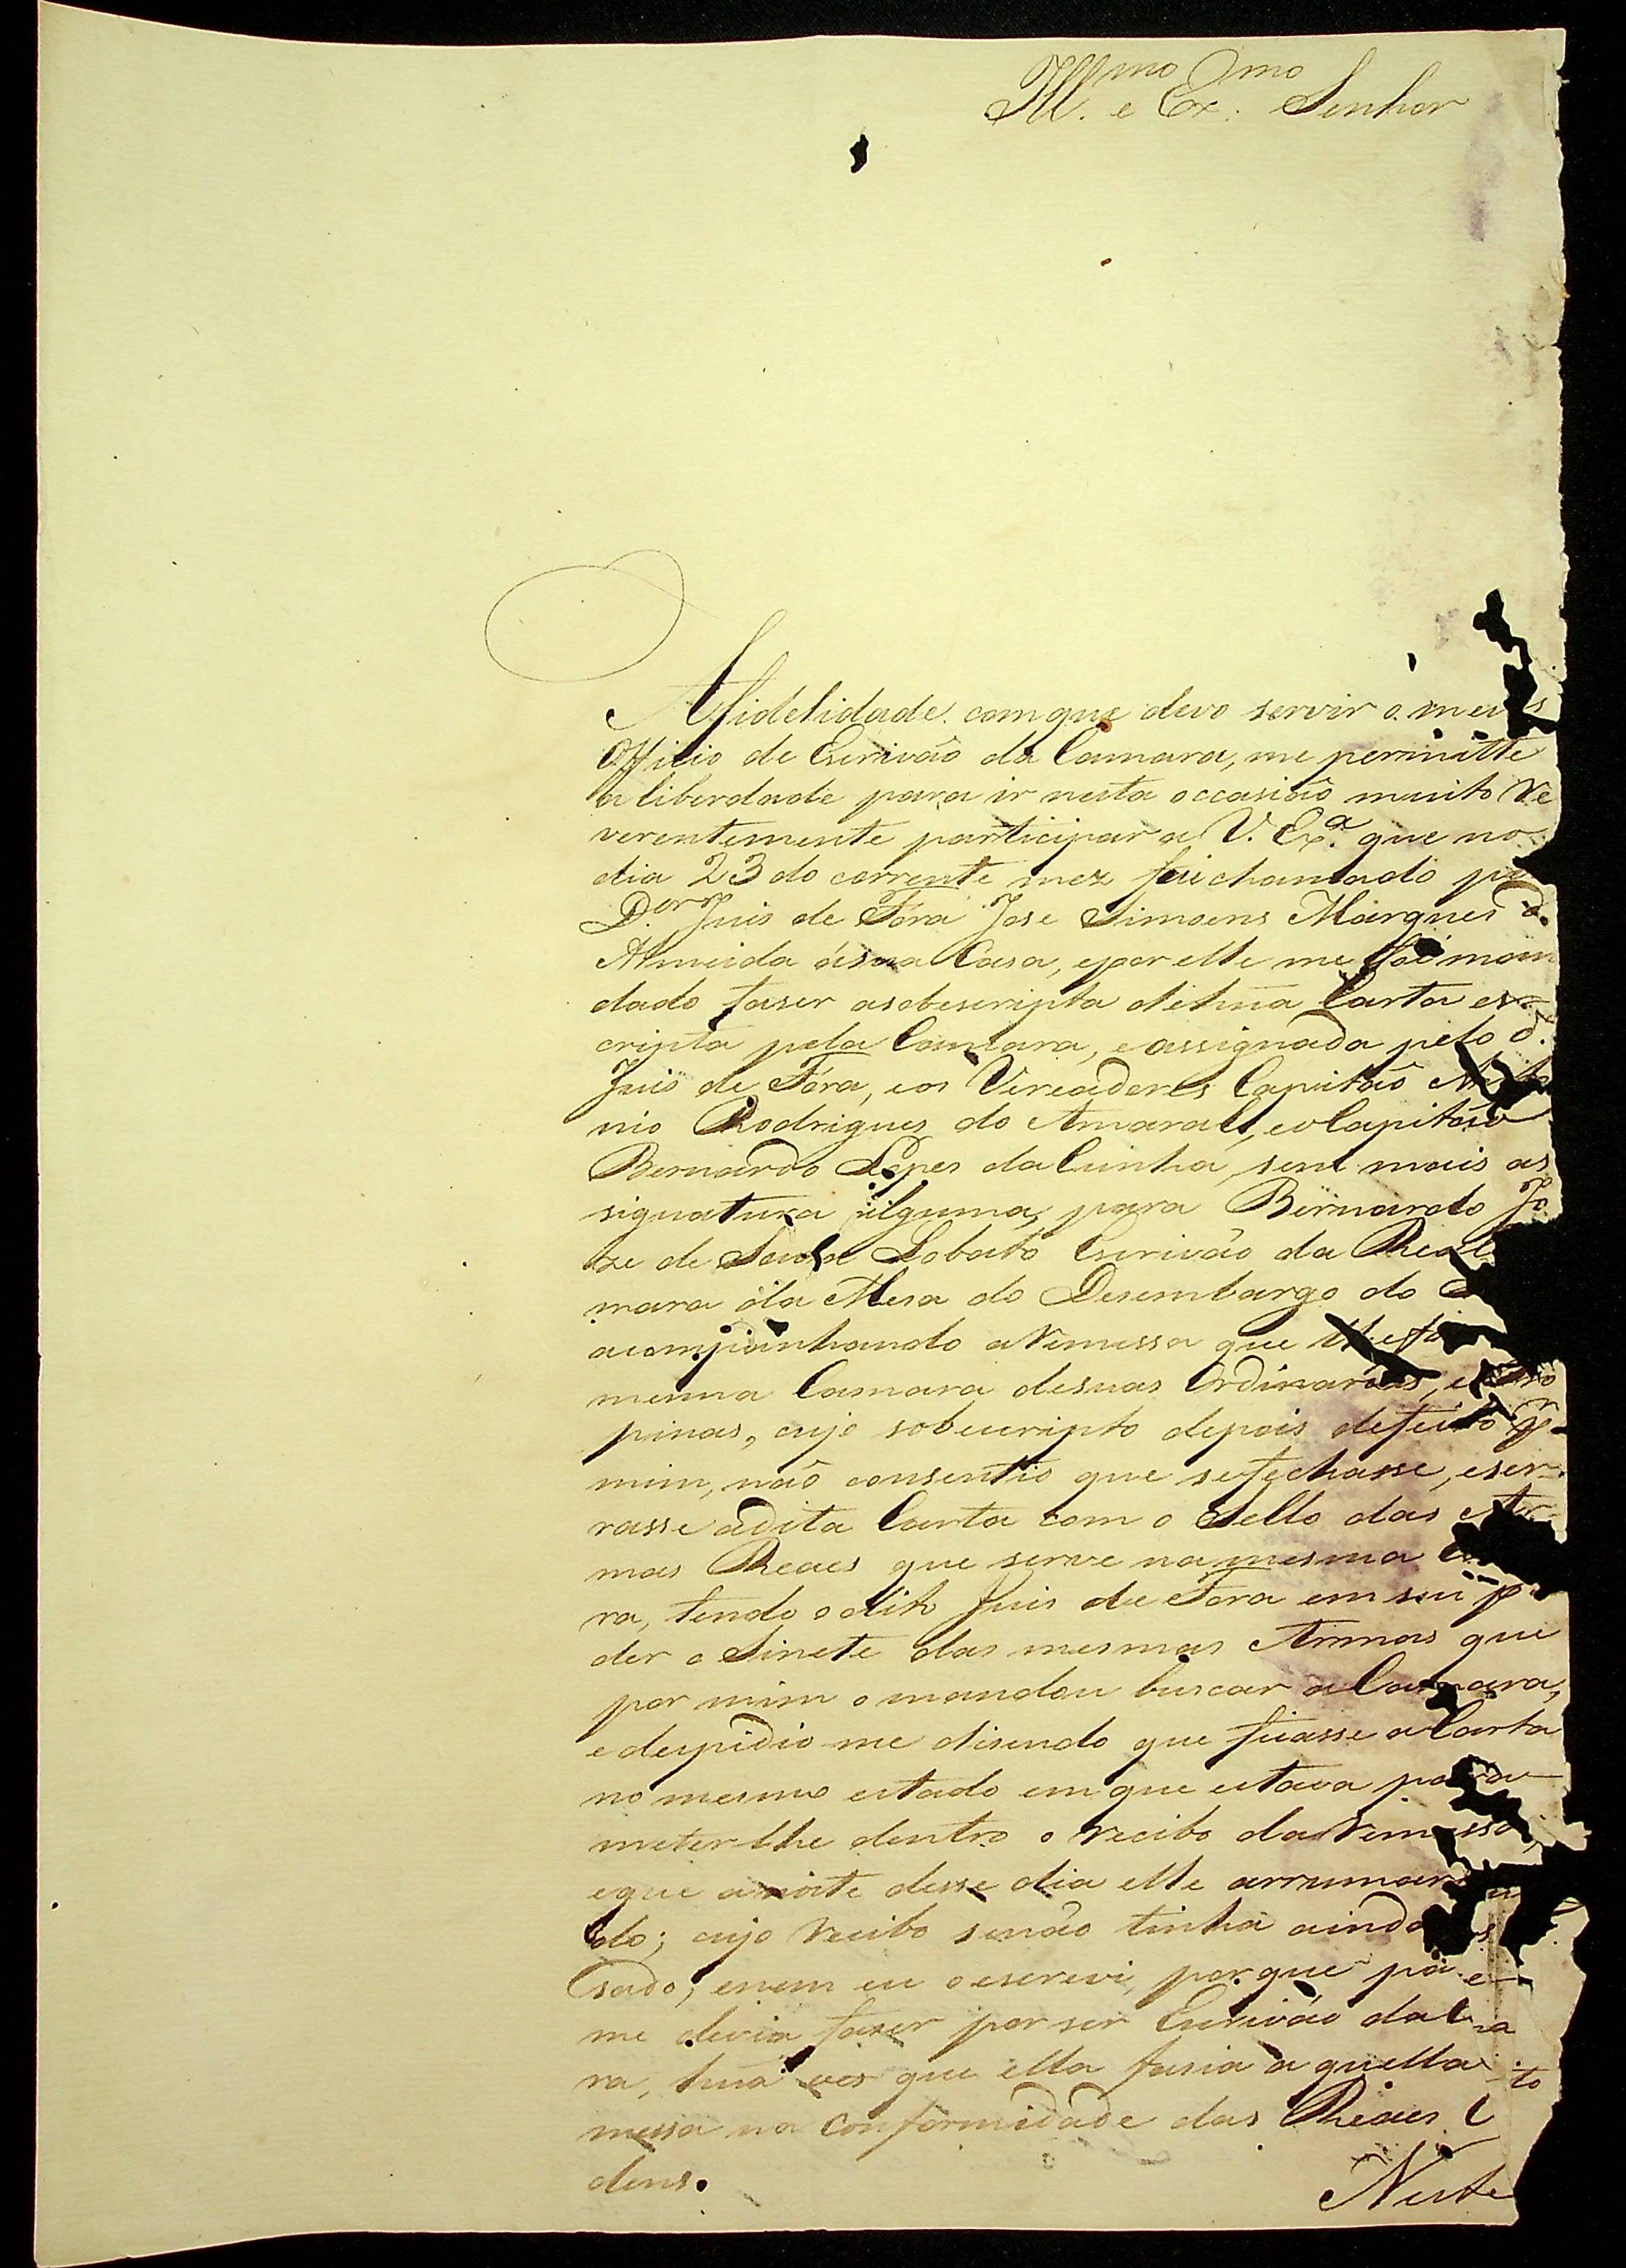 Ill.mo e Ex.mo Senhor
A fidelidade com que devo servir o meu
Officio de Escrivão da Camara, me permitte
a liberdade para ir nesta occasião muito re
verentemente participar a V. Ex.a que no
dia 23 do corrente mez fui chamado p
D.or Juis de Fóra Jose Simoens Marques d.
Almeida ásua Casa, epor elle me foi man
dado faser asobescripta dehũa Carta es=
cripta pela Camara, eassignada pelo d.
Juis de Fóra, eos Vereadores Capitão Anto
nio Rodrigues do Amaral, eoCapitão
Bernardo Lopes daCunha, sem mais as
signatura alguma, para Bernardo Jo
ze de Sousa Lobato Escrivão da Real
mara da Mesa do Desembargo do
acompanhando aremessa que lhefa
mesma Camara desuas Ordinarias, e pro
pinas, cujo sobescripto depois defeito p.r
mim, não consentio que sefechasse, eser=
rasse adita Carta com o Sello das Ar=
mas Reaes que serve namesma
ra, tendo odito Juis de Fora em seu po
der o Sinete das mesmas Armas que
por mim o mandou buscar a Camara,
edespidio-me disendo que ficasse aCarta
no mesmo estado em que estava para
meter-lhe dentro o recibo daremessa,
eque anoite desse dia elle arrumar
do; cujo recibo senão tinha ainda
sado; enem eu oescrevi, porque
me devia faser por ser Escrivão da
ra, hũa ves que ella fasia aquella
messa na Conformidade das Reaes
dens.
Neste